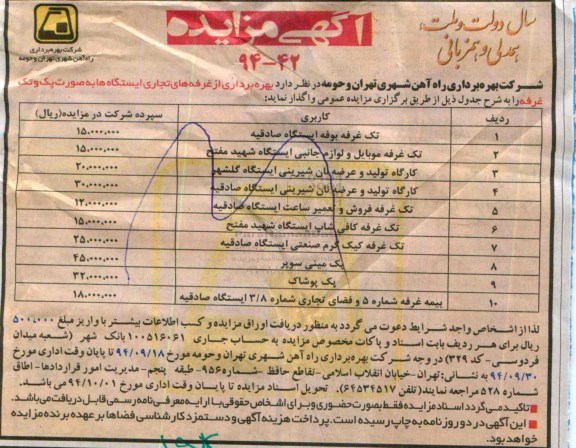 سال دولت و ملت،
همدلی و همزبانی
آگهی مزایده
۹۴-۴۲
شرکت بهره برداری
راه آهن شهری تهران و حومه
شرکت بهره برداری راه آهن شهری تهران و حومه در نظر دارد بهره برداری از غرفه های تجاری ایستگاه ها به صورت پک و تک
غرفه را به شرح جدول ذیل از طریق برگزاری مزایده عمومی واگذار نماید:
ردیف کاربری سپرده شرکت در مزایده(ریال)
۱ تک غرفه بوفه ایستگاه صادقیه ۱۵،۰۰۰،۰۰۰
۲ تک غرفه موبایل و لوازم جانبی ایستگاه شهید مفتح ۱۵،۰۰۰،۰۰۰
۳ کارگاه تولید و عرضه نان شیرینی ایستگاه گلشهر ۲۰،۰۰۰،۰۰۰
۴ کارگاه تولید و عرضه نان شیرینی ایستگاه صادقیه ۳۰،۰۰۰،۰۰۰
۵ تک غرفه فروش و تعمیر ساعت ایستگاه صادقیه ۱۲،۰۰۰،۰۰۰
۶ تک غرفه کافی شاپ ایستگاه شهید مفتح ۱۵،۰۰۰،۰۰۰
۷ تک غرفه کیک گرم صنعتی ایستگاه صادقیه ۲۵،۰۰۰،۰۰۰
۸ پک مینی سوپر ۴۵،۰۰۰،۰۰۰
۹ پک پوشاک ۳۲،۰۰۰،۰۰۰
۱۰ بیمه غرفه شماره ۵ و فضای تجاری شماره ۳/۸ ایستگاه صادقیه ۱۸،۰۰۰،۰۰۰
لذا از اشخاص واجد شرایط دعوت می گردد به منظور دریافت اوراق مزایده و کسب اطلاعات بیشتر با واریز مبلغ ۵۰۰،۰۰۰
ریال برای هر ردیف بابت اسناد و پاکات مخصوص مزایده به حساب جاری ۱۰۰۵۱۶۰۶۱ بانک شهر (شعبه میدان
فردوسی - کد ۳۲۹) در وجه شرکت بهره برداری راه آهن شهری تهران و حومه مورخ ۹۴/۰۹/۱۸ تا پایان وقت اداری مورخ
۹۴/۰۹/۳۰ به نشانی: تهران-خیابان انقلاب اسلامی -تقاطع حافظ -شماره۹۵۶- طبقه پنجم -مدیریت امور قراردادها- اطاق
شماره ۵۲۸ مراجعه نمایند(تلفن ۶۴۵۳۴۵۱۷). تحویل اسناد مزایده تا پایان وقت اداری مورخ ۹۴/۱۰/۰۱ می باشد.
تاکید می گردد اسناد مزایده فقط بصورت حضوری و برای اشخاص حقوقی با ارایه معرفی نامه رسمی قابل دریافت می باشد.
این آگهی در دو روزنامه به چاپ رسیده است. پرداخت هزینه آگهی و دستمزد کارشناسی فضاها بر عهده برنده مزایده
خواهد بود.